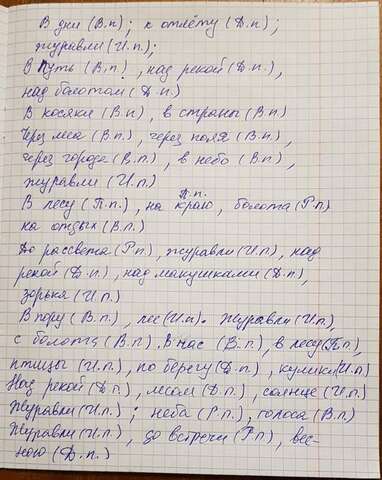 В дни (В.п); к отлёту (Д.п);
журавли (И.п);
В путь (В.п), над рекой (Д.п.),
над болотом (Д.п)
В косяки (В.п), в страны (В.п)
Через леса (В.п.), через поля (В.п),
через города (В.п.), в небо (В.п),
журавли (И.П)
В лесу (П.п.), на краю П.п., болота (Р.п)
на отдых (В.п.)
До рассвета (Р.п), журавли (И.п), над
рекой (Д.п), над макушками (Д.п),
зорька (И.П)
В пору (В.п.), лес (И.п). Журавли (И.п),
с болота (В.п). В час (В.п), в лесу (П.п),
птицы (И.п), по берегу (Д.п), кулики (И.п)
Над рекой (Д.п), лесом (Д.п), солнце (И.п)
Журавли (И.п); неба (Р.п), голоса (В.п)
Журавли (И.п), до встречи (Р.п), вес-
ною (Д.п.)